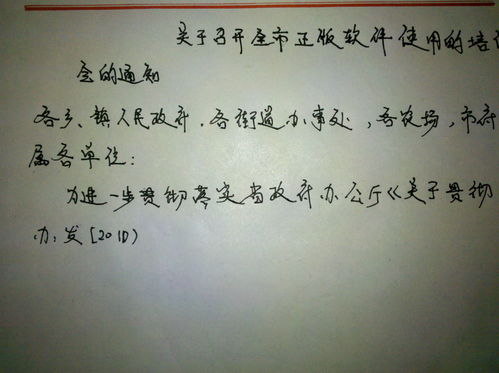 关于召开全市正版软件使用的培
会的通知
各乡、镇人民政府,各街道办事处,各农场,市府
属各单位:
为进一步贯彻落实省政府办公厅《关于贯彻
办发[201